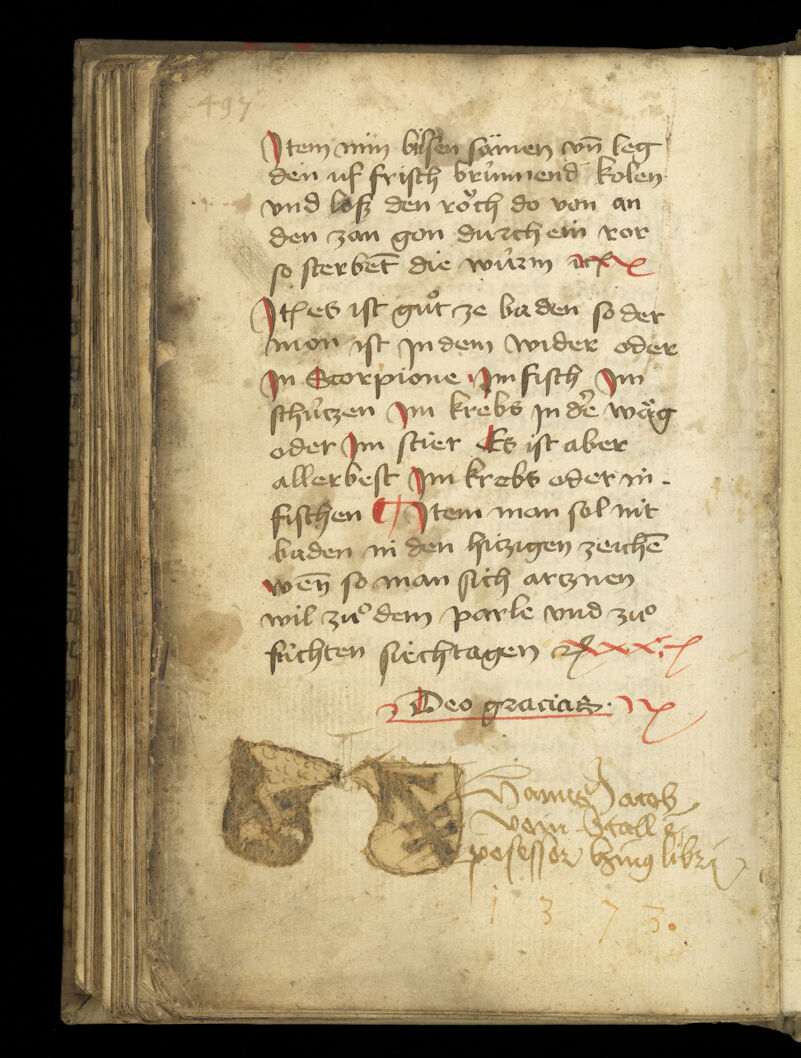 497
Item nim bilsen sämen vn̄ leg
den uf frisch brünnend kolen
vnd loß den röch do von an
den zan gon durch ein ror
so sterbet̄ die würm
It̄ es ist guͦt ze baden so der
mon ist Jn dem wider oder
Jn Scorpione Jm fisch Jm
schützen Jm krebs Jn d̄e wäg
oder Jm stier Es ist aber
aller best Jm krebs oder in
fischen ¶ Item man sol nit
baden in den hitzigen zeichē
wen̄ so man sich artznen
wil zuͦ dem parle vnd zuͦ
füchten siechtagen
Deo gracias
Hanns Jacob
vom Stall
posessor huius libri
1 3 7 3.